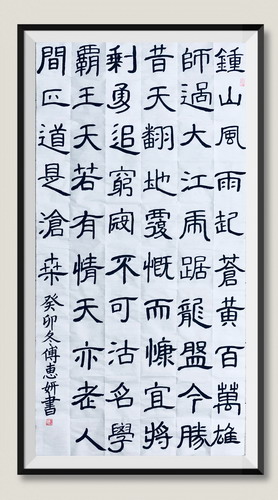 鍾山風雨起蒼黃百萬雄
師過大江虎踞龍盤今勝
昔天翻地覆慨而慷宜將
剩勇追窮寇不可沽名學
霸王天若有情天亦老人
間正道是滄桑
癸卯冬傅惠妍書